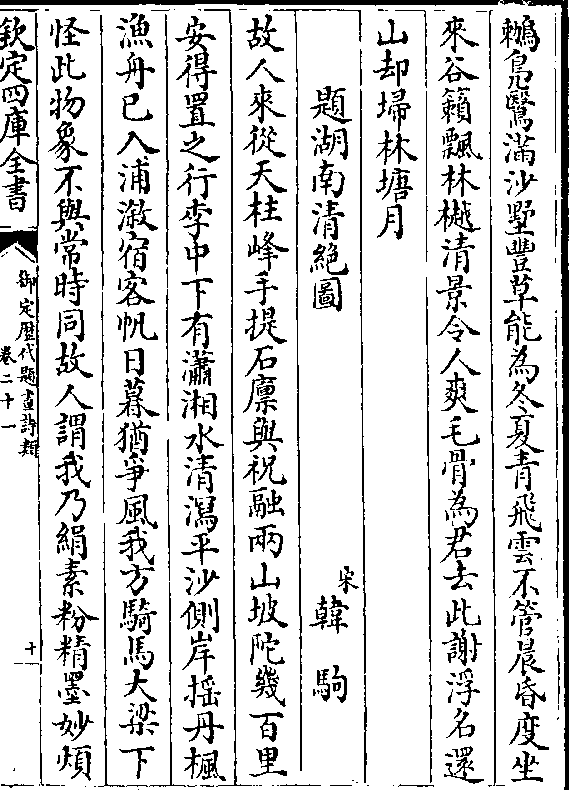 鶒鳧鷖滿沙墅豐草能為冬夏青飛雲不管晨昏度坐
來谷籟飄林樾清景令人爽毛骨為君去此謝浮名還
山却埽林塘月
題湖南清絶圖
宋 韓駒
故人來從天柱峰手提石廩與祝融兩山坡陀幾百里
安得置之行李中下有瀟湘水清瀉平沙側岸揺丹楓
漁舟已入浦漵宿客帆日暮猶爭風我方騎馬大梁下
怪此物象不與常時同故人謂我乃絹素粉精墨妙煩
欽定四庫全書
御定歴代題畫詩類
卷二十一
十